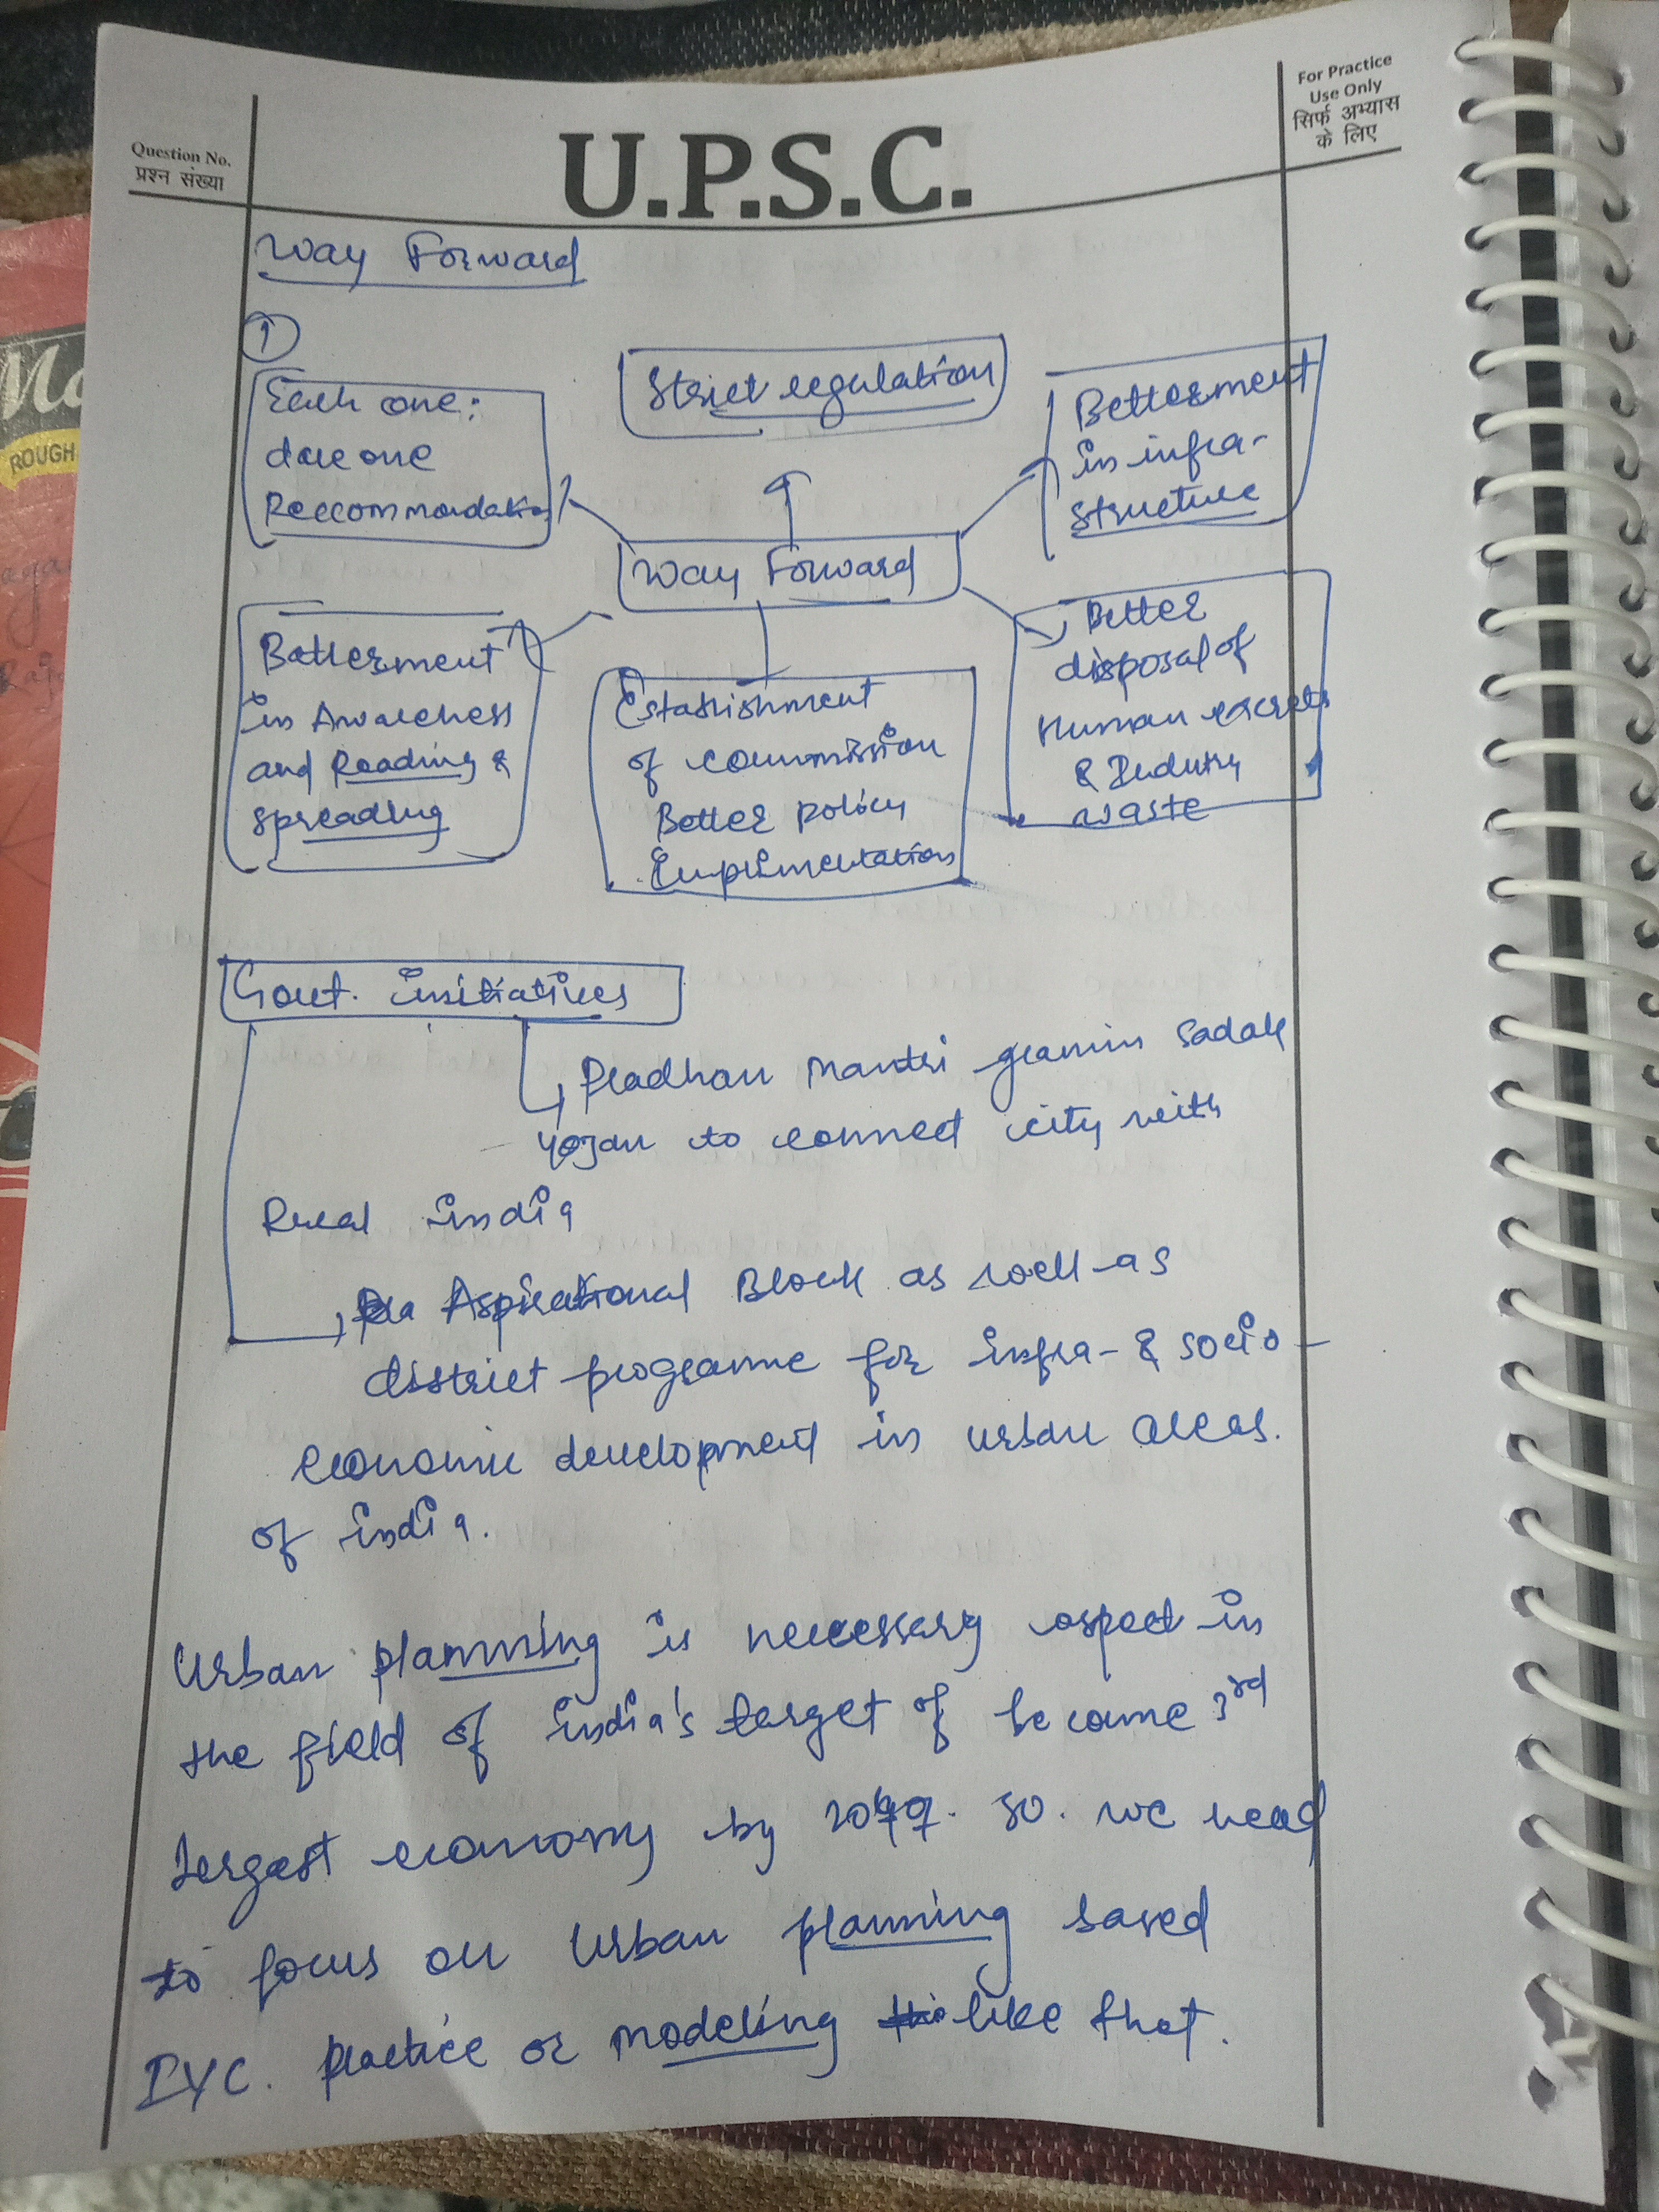 Question No.
प्रश्न संख्या
U.P.S.C.
For Practice
Use Only
सिर्फ अभ्यास
के लिए
Way Forward
1
Each one:
dare one
Reccommondation
Strict regulation
Betterment
in infra-
structure
Way Forward
Betterment
in Awareness
and Reading &
spreading
Establishment
of commission
Better policy
Implimentation
Better
disposal of
Human excrets
& Industry
waste
Govt. initiatives
Pradhan Mantri gramin Sadak
yojan to connect city with
Rural india
Aspirational Block as well as
district programe for infra- & socio-
economic development in urban areas.
of india.
Urban planning is neccessary aspect in
the field of india's target of become 3rd
largest economy by So. we need
to focus on urban planning based
practice or modeling like that.
ROUGH